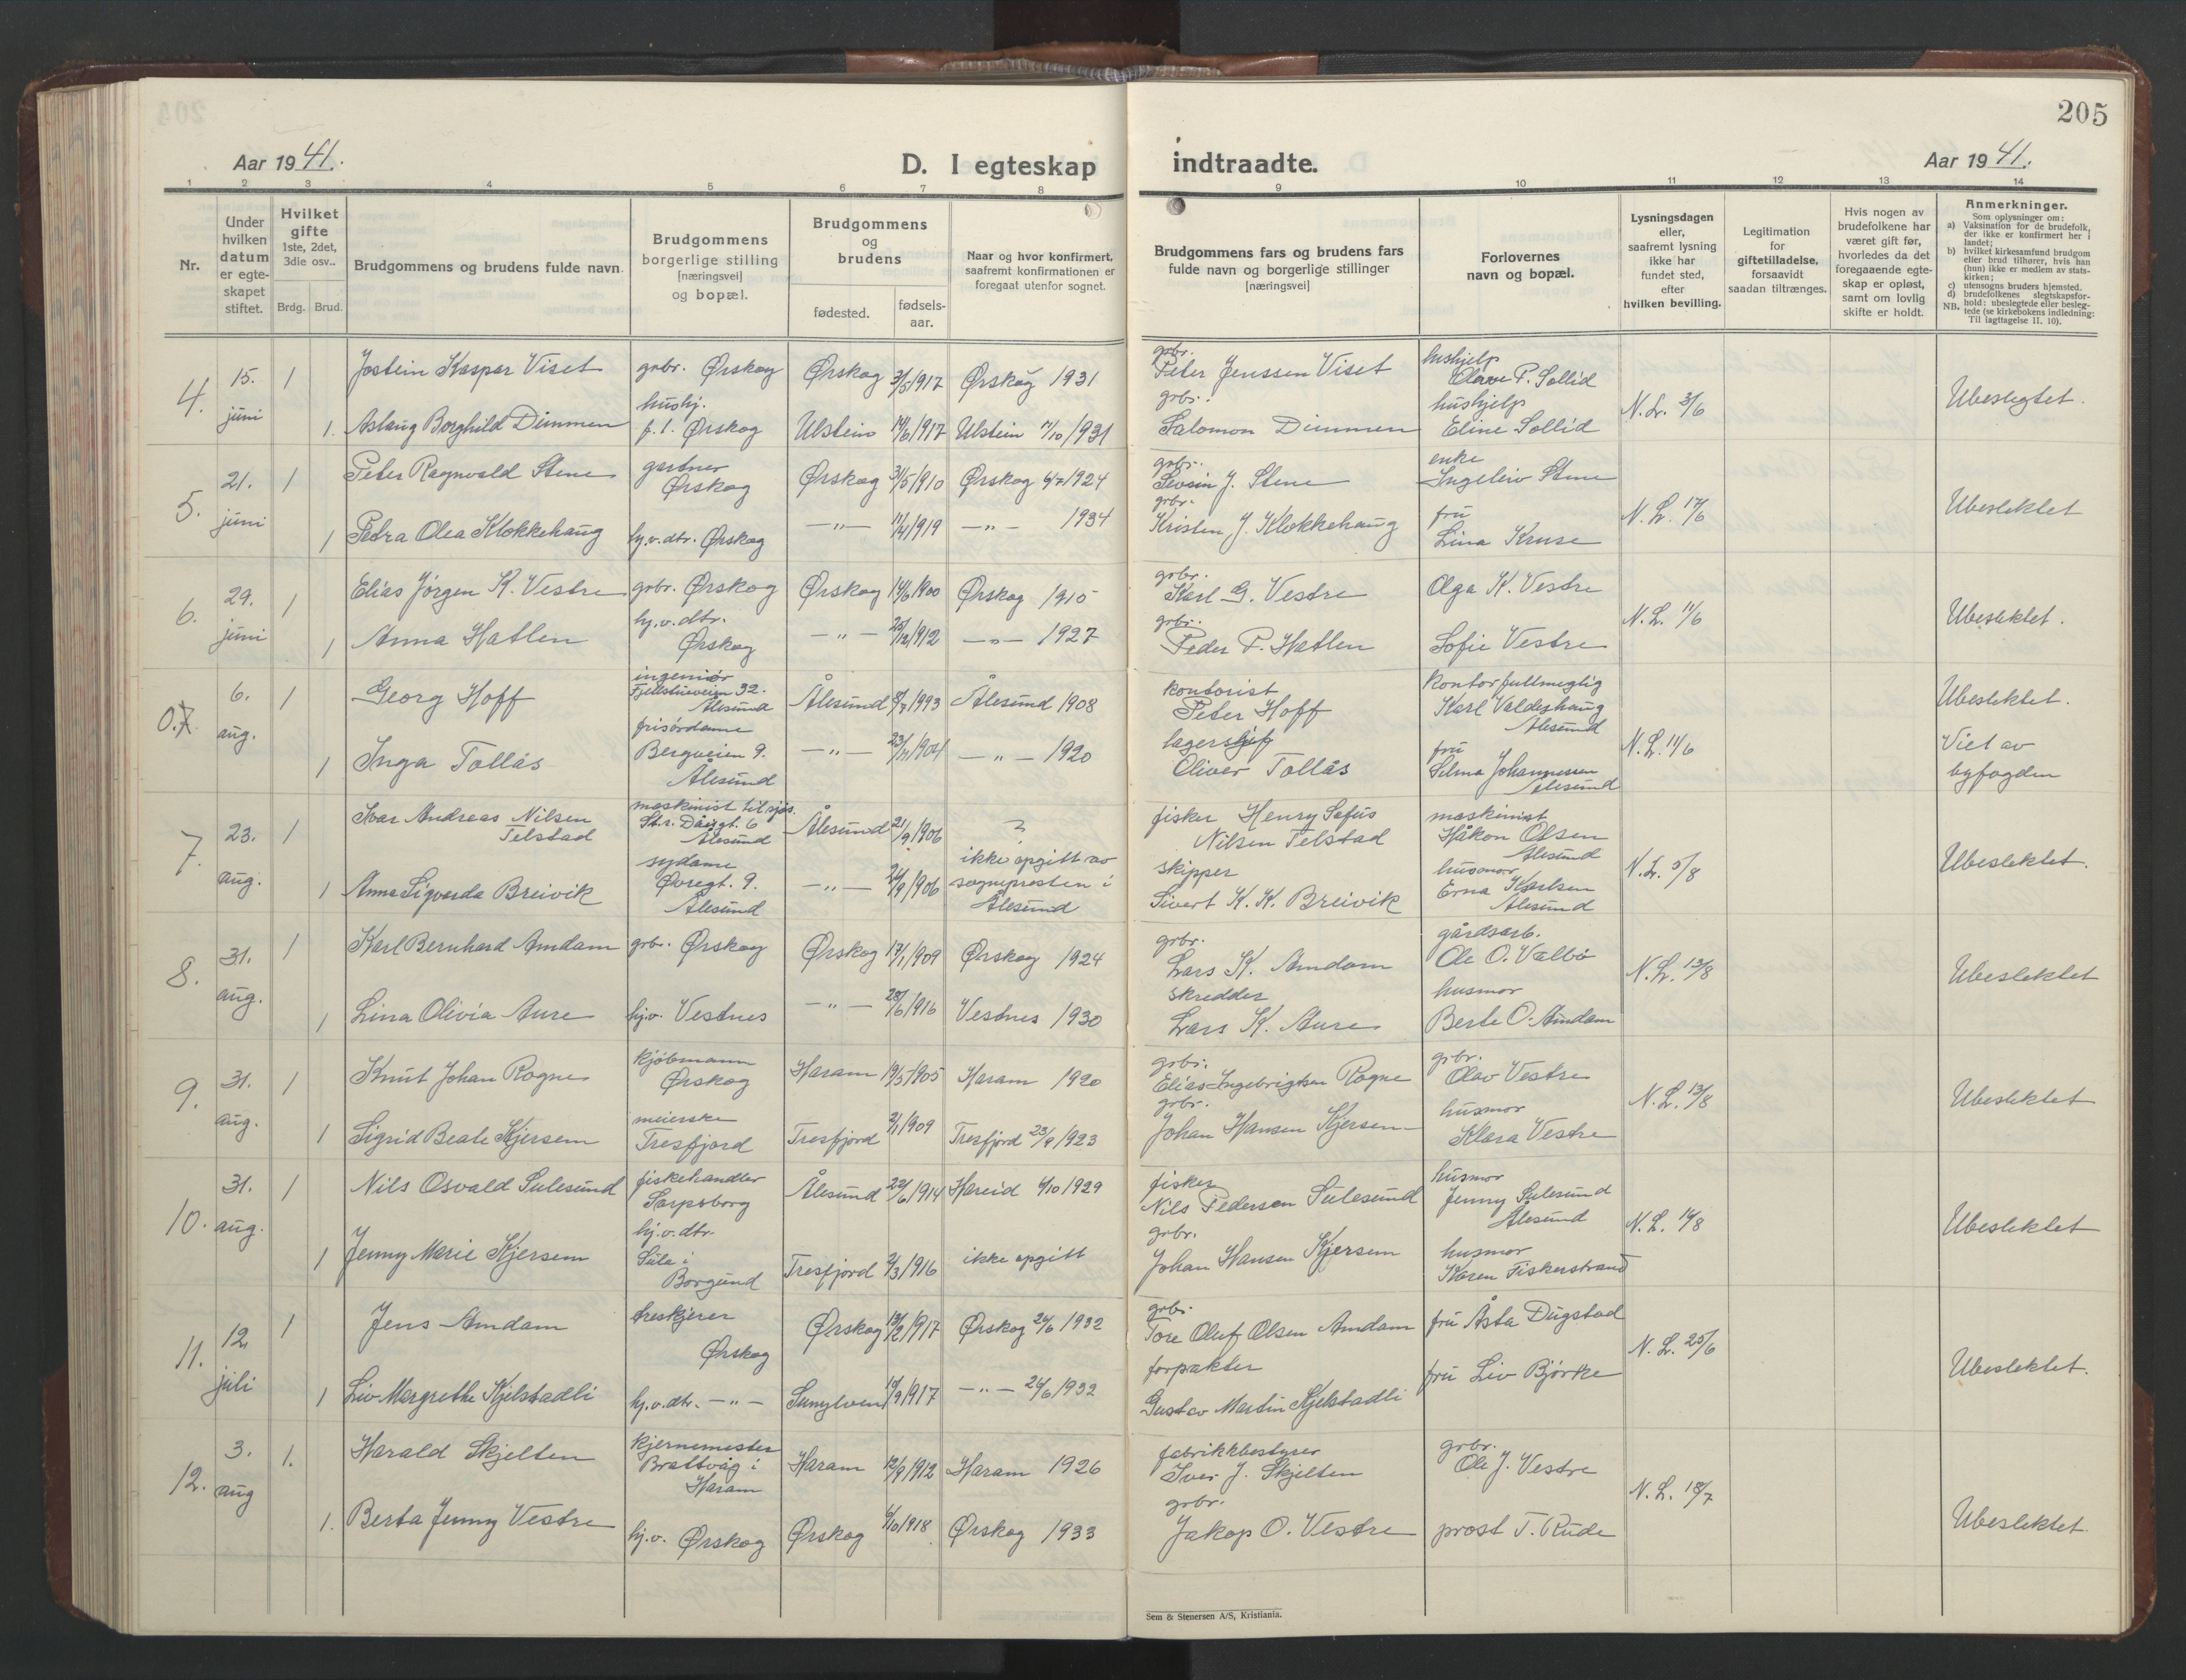 205
Aar 1941.
D. I egteskap indtraadte.
Aar 1941.
1 2 3 4 5 6 7 8 9 10 11 12 13 14
Nr.
Under hvilken datum er egteskapet stiftet.
Hvilket gifte 1ste, 2det, 3die osv..
Brdg. Brud.
Brudgommens og brudens fulde navn.
Brudgommens borgerlige stilling [næringsvei] og bopæl.
Brudgommens og brudens
fødested.
fødselsaar.
Naar og hvor konfirmert, saafremt konfirmationen er foregaat utenfor sognet.
Brudgommens fars og brudens fars fulde navn og borgerlige stillinger [næringsvei]
Forlovernes navn og bopæl.
Lysningsdagen eller, saafremt lysning ikke har fundet sted, efter hvilken bevilling.
Legitimation for giftetilladelse, forsaavidt saadan tiltrænges.
Hvis nogen av brudefolkene har været gift før, hvorledes da det foregaaende egteskap er opløst, samt om lovlig skifte er holdt.
Anmerkninger.
Som oplysninger om:
a) Vaksination for de brudefolk, der ikke er konfirmert her i landet;
b) hvilket kirkesamfund brudgom eller brud tilhører, hvis han (hun) ikke er medlem av statskirken;
c) utensogns bruders hjemsted.
d) brudefolkenes slegtskapsforhold: ubeslegtede eller beslegtede (se kirkebokens indledning: NB. Til Iagttagelse II. 10).
4. 15. juni 1 Jostein Kaspar Viset grbr. Ørskog Ørskog 3/5 1917 Ørskog 1931 grbr. Peter Jenssen Viset hushjelp P. Sollid N.L. 3/6 Ubeslegtet.
1. Aslaug Borghild Dimmen hushj. f.t. Ørskog Ulstein 1917 Ulstein 1931 grbr. Salomon Dimmen hushjelp Eline Sollid
5. 21. juni 1 Peter Ragnvald Stene gartner Ørskog Ørskog 31/5 1910 Ørskog 6/7 1924 grbr. J. Stene enke Ingeleiv Stene N.L. 17/6 Ubeslektet
1 Petra Olea Klokkehaug hj.v.dtr. Ørskog —„— 11/4 1919 —„— 1934 grbr. Kristen J. Klokkehaug fru Lina Kruse
6. 29. juni 1 Elias Jørgen K. Vestre grbr. Ørskog Ørskog 14/6 1900 Ørskog 1915 grbr. Karl G. Vestre Olga K. Vestre N.L. 11/6 Ubeslektet.
1 Anna Hatlen hj.v.dtr. Ørskog —„— 1912 —„— 1927 grbr. Peder P. Hatlen Sofie Vestre
0.7 6. aug. 1 Georg Hoff ingeniør Fjellstuveien 32. Ålesund Ålesund 1893 Ålesund 1908 kontorist Peter Hoff kontorfullmegtig Karl Valdeshaug Ålesund N.L. 11/6 Ubeslektet.
1 Inga Tollås frisørdame Bergveien 9. Ålesund —„— 1904 —„— 1920 lagersjef Oliver Tollås fru Selma Johannessen Ålesund Viet av byfogden
7. 23. aug. 1 Ivar Andreas Nilsen Telstad maskinist til sjøs. Ålesund Ålesund 21/9 1906 ? fisker Henry Sofus Nilsen Telstad maskinist Håkon Olsen Ålesund N.L. 5/8 Ubeslektet.
1 Anna Sigvarda Breivik sydame Øvregt. 9. Ålesund —„— 1906 ikke opgitt av sognepresten i Ålesund skipper Sivert K. K. Breivik husmor Erna Karlsen Ålesund
8. 31. aug. 1 Karl Bernhard Amdam grbr. Ørskog Ørskog 17/1 1909 Ørskog 1924 grbr. Lars K. Amdam gårdsarb. Ole O. Valbø N.L. 13/8 Ubeslektet
1 Lina Olivia Aure hj.v. Vestnes —„— 28/6 1916 Vestnes 1930 skredder Lars K. Aure husmor Berte O. Amdam
9. 31. aug. 1 Knut Johan Rogne kjøbmann Ørskog Haram 19/5 1905 Haram 1920 grbr. Elias Ingebrigtsen Rogne grbr. Olav Vestre N.L. 13/8 Ubeslektet
1 Sigrid Beate Kjersem meierske Tresfjord Tresfjord 2/1 1909 Tresfjord 23/9 1923 grbr. Johan Hansen Kjersem husmor Klara Vestre
10. 31. aug. 1 Nils Osvald Sulesund fiskehandler Sarpsborg Ålesund 22/6 1914 Hareid 6/10 1929 fisker Nils Pedersen Sulesund husmor Jenny Sulesund Ålesund N.L. 14/8 Ubeslektet
1 Jenny Marie Kjersem hj.v.dtr. Sula i Borgund Tresfjord 2/3 1916 ikke opgitt grbr. Johan Hansen Kjersem husmor Karen Fiskerstrand
11. 12. juli 1 Jens Amdam treskjerer Ørskog Ørskog 13/2 1917 Ørskog 26/6 1932 grbr. Tore Oluf Olsen Amdam fru Åsta Dugstad N.L. 25/6 Ubeslektet.
1 Liv Margrethe Kjelstadli hj.v.dtr. —„— Sunylven 1917 —„— 26/6 1932 forpakter Gustav Martin Kjelstadli fru Liv Bjørke
12. 3. aug 1. Harald Skjelten kjernemester Brattvåg i Haram Haram 12/9 1912 Haram 1926 fabrikkbestyrer Iver J. Skjelten grbr. Ole J. Vestre N.L. 18/7 Ubeslektet.
1. Berta Jenny Vestre hj.v. Ørskog Ørskog 6/10 1918 Ørskog 1933 grbr. Jakop O. Vestre prost T. Rude
Sem & Stenersen A/S, Kristiania.